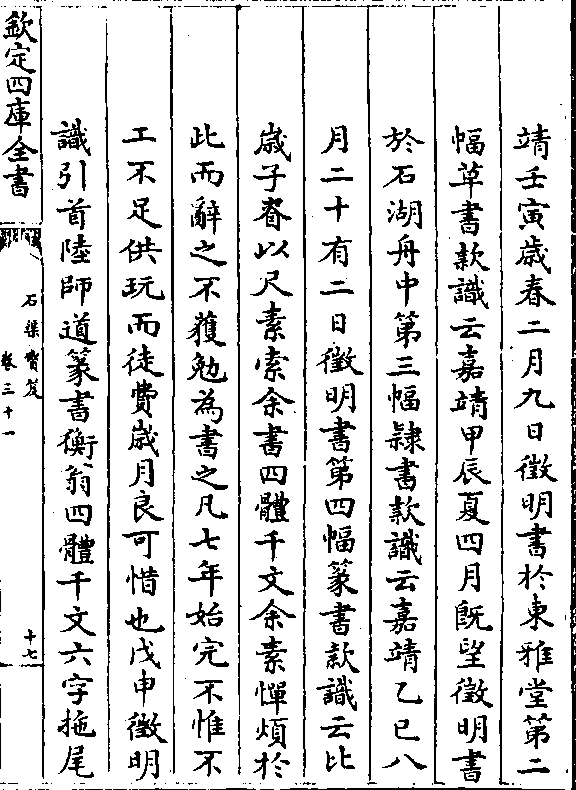 靖壬寅歳春二月九日徵明書於東雅堂第二
幅草書款識云嘉靖甲辰夏四月旣望徵明書
於石湖舟中第三幅隸書款識云嘉靖乙巳八
月二十有二日徵明書第四幅篆書款識云比
歳子春以尺素索余書四體千文余素憚煩於
此而辭之不獲勉為書之凡七年始完不惟不
工不足供玩而徒費歳月良可惜也戊申徵明
識引首陸師道篆書衡翁四體千文六字拖尾
欽定四庫全書
石渠寶笈
卷三十一
十七